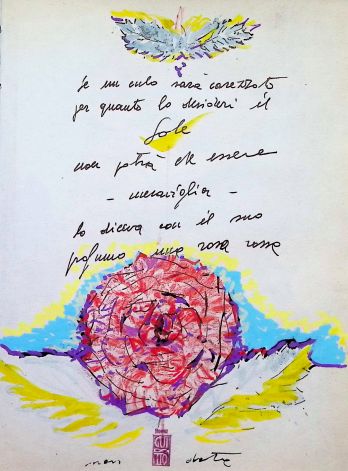 se un culo sarà carezzato
per quanto lo desideri il
Sole
non potrà che essere
- meraviglia -
lo diceva con il suo
profumo una rosa rossa